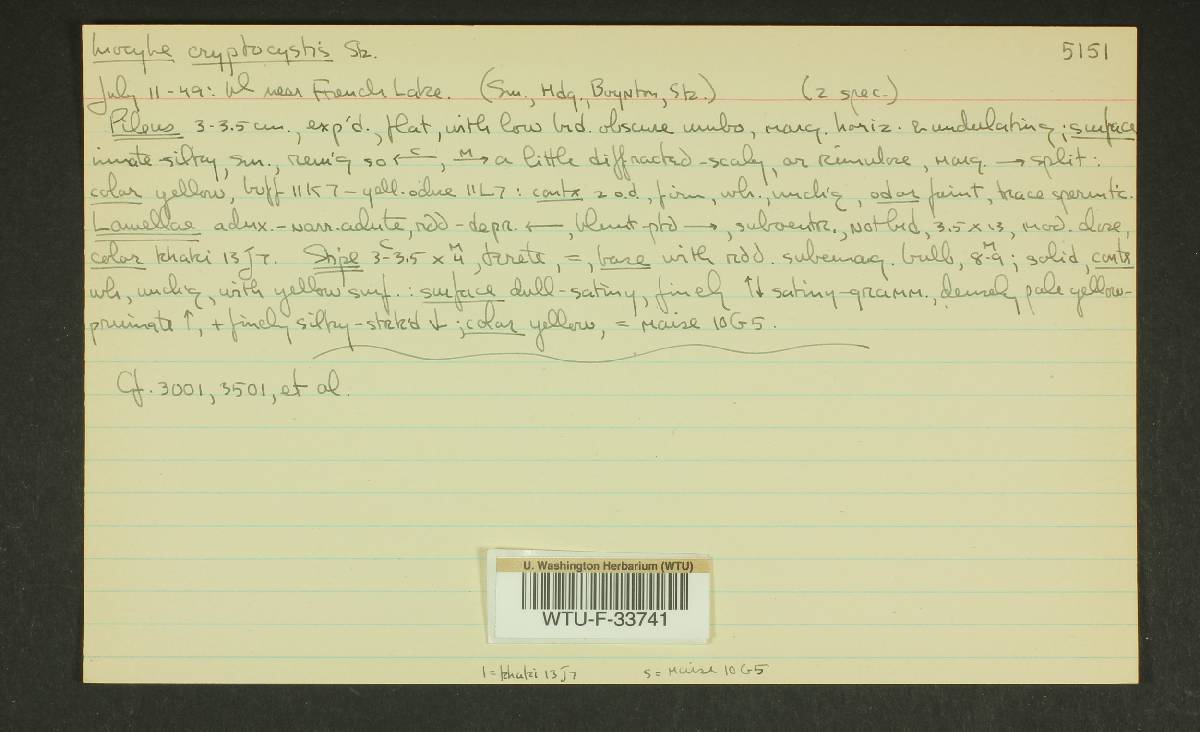 Inocybe cryptocystis Stz. 5151
July 11-49: W near French Lake. (Sm., Hdg., Boynton, Stz.) (2 spec.)
Pileus 3-3.5 cm., exp'd., flat, with low brd. obscure umbo, marg. horiz. & undulating; surface
innate-silky, sm., rem'g so ←C, M→ a little diffracted-scaly, or rimulose, marg. → split:
color yellow, buff 11K7-yell. ochre 11L7: contx 2 o.d., firm, wh., unch'g, odor faint, trace spermtc.
Lamellae adnx.-narr. adnate, rdd-depr. ←, blunt-ptd →, subventr., not brd, 3.5 x 13, mod. close,
color khaki 13J7. Stipe 3-3.5 C x 4 M, terete, =, base with rdd. submarg. bulb, 8-9 M; solid, contx
wh, unch'g, with yellow surf.: surface dull-satiny, finely ↑↓ satiny-gramm., densely pale yellow-
pruinate ↑, + finely silky-strk'd ↓; color yellow, = Maize 10G5.
Cf. 3001, 3501, et al.
U. Washington Herbarium (WTU)
WTU-F-33741
l = khaki 13J7 s = Maize 10G5